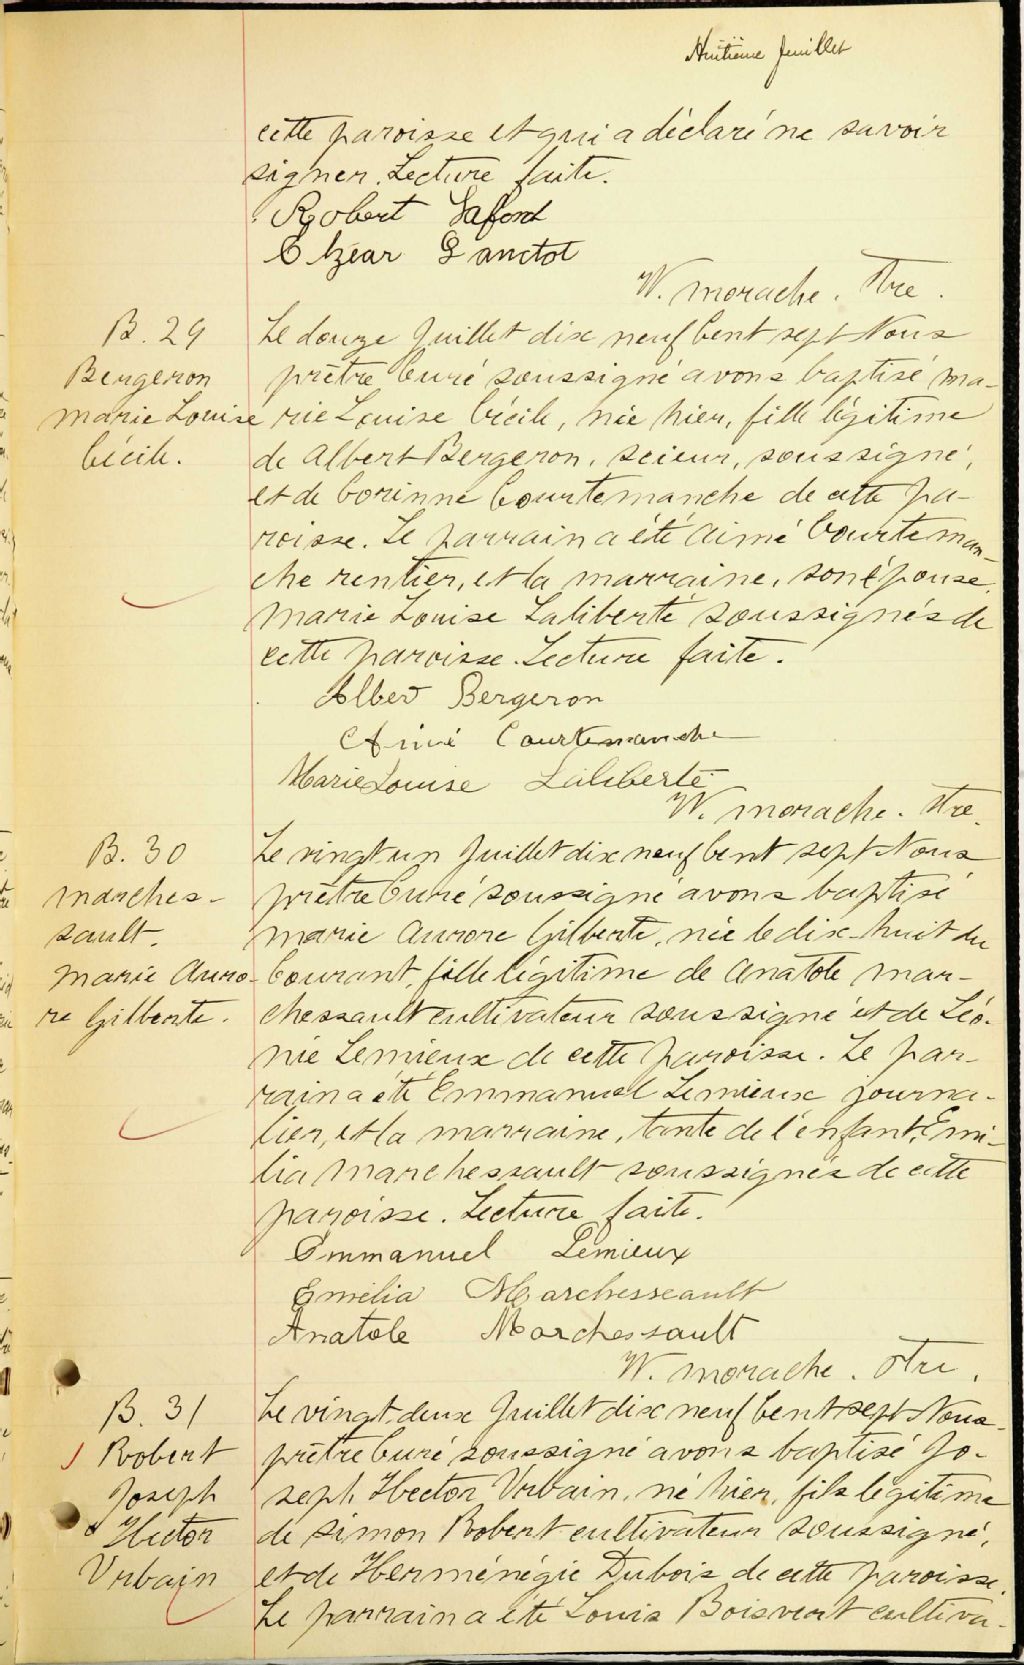 Huitième feuillet
cette paroisse et qui a déclaré ne savoir
signer. Lecture faite.
Robert Lafond
Elzéar Sanctot
W. Morache. Ptre.
B. 29
Bergeron
Marie Louise
Cécile.
Le douze Juillet dix neuf Cent sept Nous
prêtre Curé soussigné avons baptisé Ma-
rie Louise Cécile, née hier, fille légitime
de Albert Bergeron, scieur, soussigné,
et de Corinne Courtemanche de cette pa-
roisse. Le parrain a été Aimé Courteman-
che rentier, et la marraine, son épouse,
Marie Louise Laliberté soussignés de
cette paroisse. Lecture faite.
Alber Bergeron
Aimé Courtemanche
Marie Louise Laliberté
W. Morache. Ptre.
B. 30
Marches-
sault.
Marie Auro-
re Gilberte.
Le vingt un Juillet dix neuf Cent sept Nous
prêtre Curé soussigné avons baptisé
Marie Aurore Gilberte, née le dix-huit du
Courant, fille légitime de Anatole Mar-
chessault cultivateur soussigné et de Léo-
nie Lemieux de cette paroisse. Le par-
rain a été Emmanuel Lemieux journa-
lier, et la marraine, tante de l'enfant, Emi-
lia Marchessault soussignés de cette
paroisse. Lecture faite.
Emmanuel Lemieux
Emélia Marchesseault
Anatole Marchessault
W. Morache. Ptre.
B. 31
Robert
Joseph
Hector
Urbain
Le vingt-deux Juillet dix neuf Cent sept Nous
prêtre Curé soussigné avons baptisé Jo-
seph Hector Urbain, né hier, fils légitime
de Simon Robert cultivateur soussigné,
et de Herménégie Dubois de cette paroisse.
Le parrain a été Louis Boisvert cultiva-